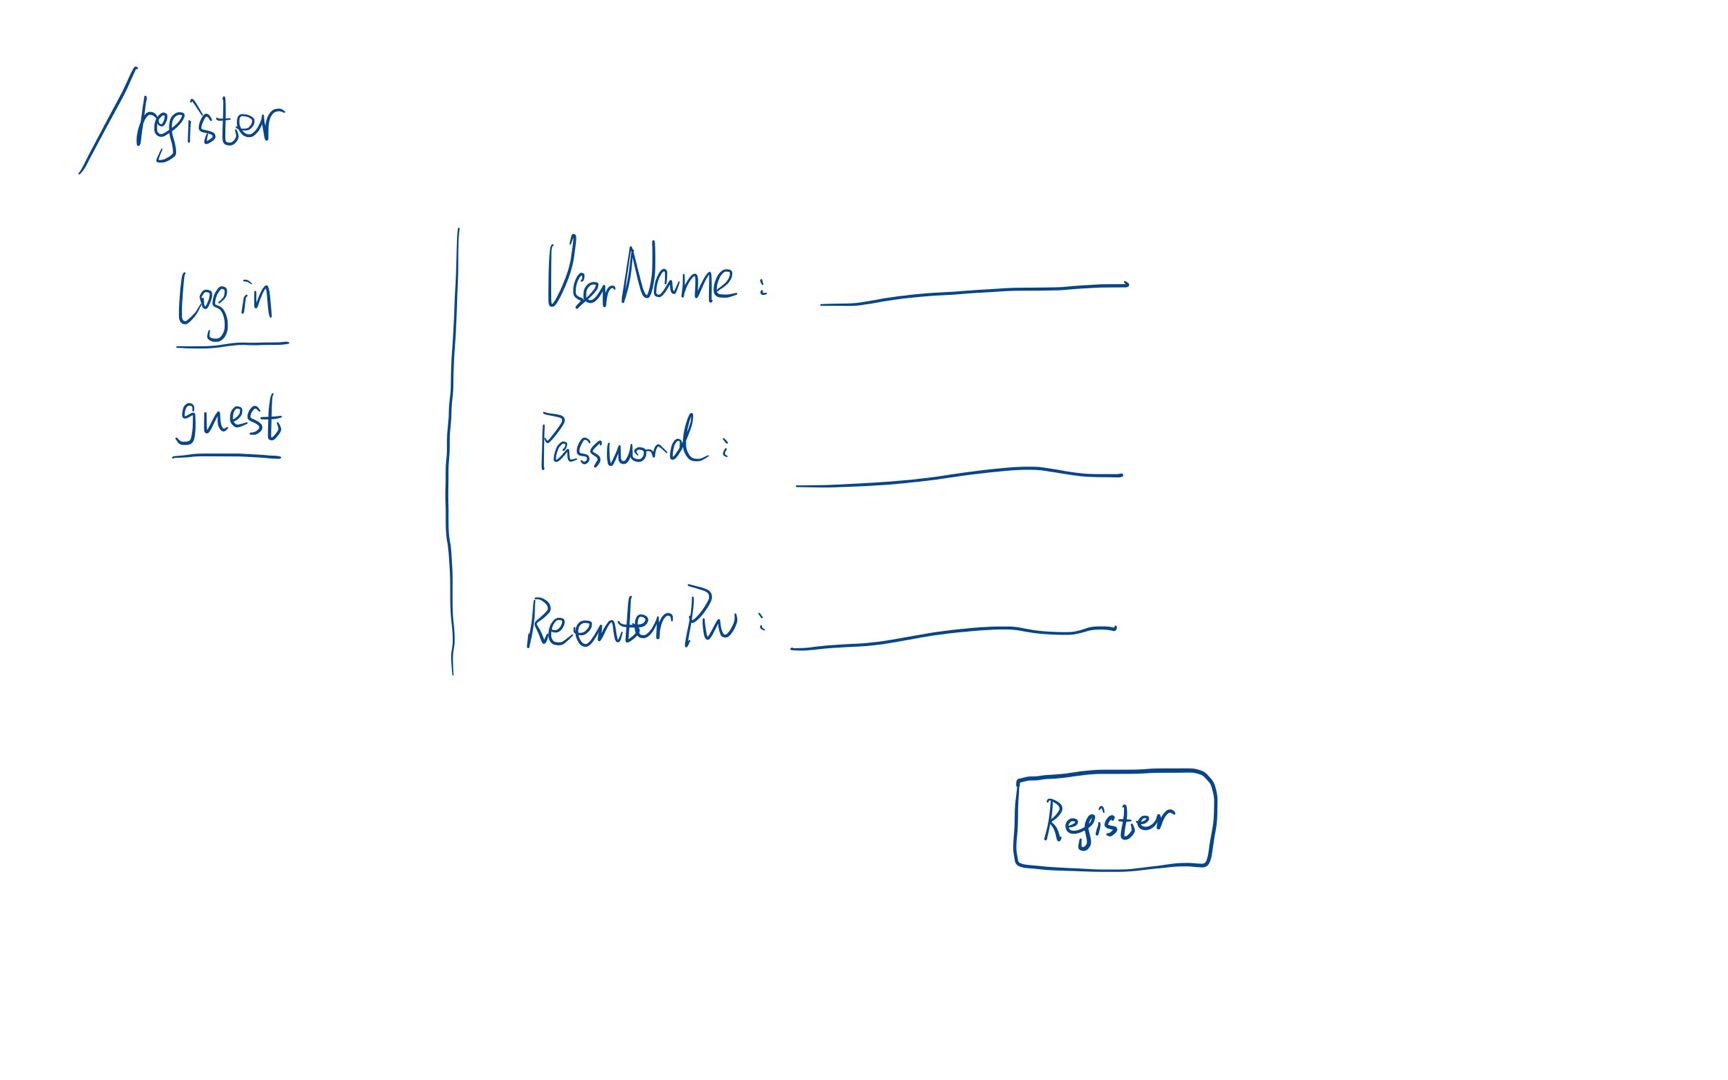 /register
Login
guest
UserName :
Password :
Reenter Pw :
Register